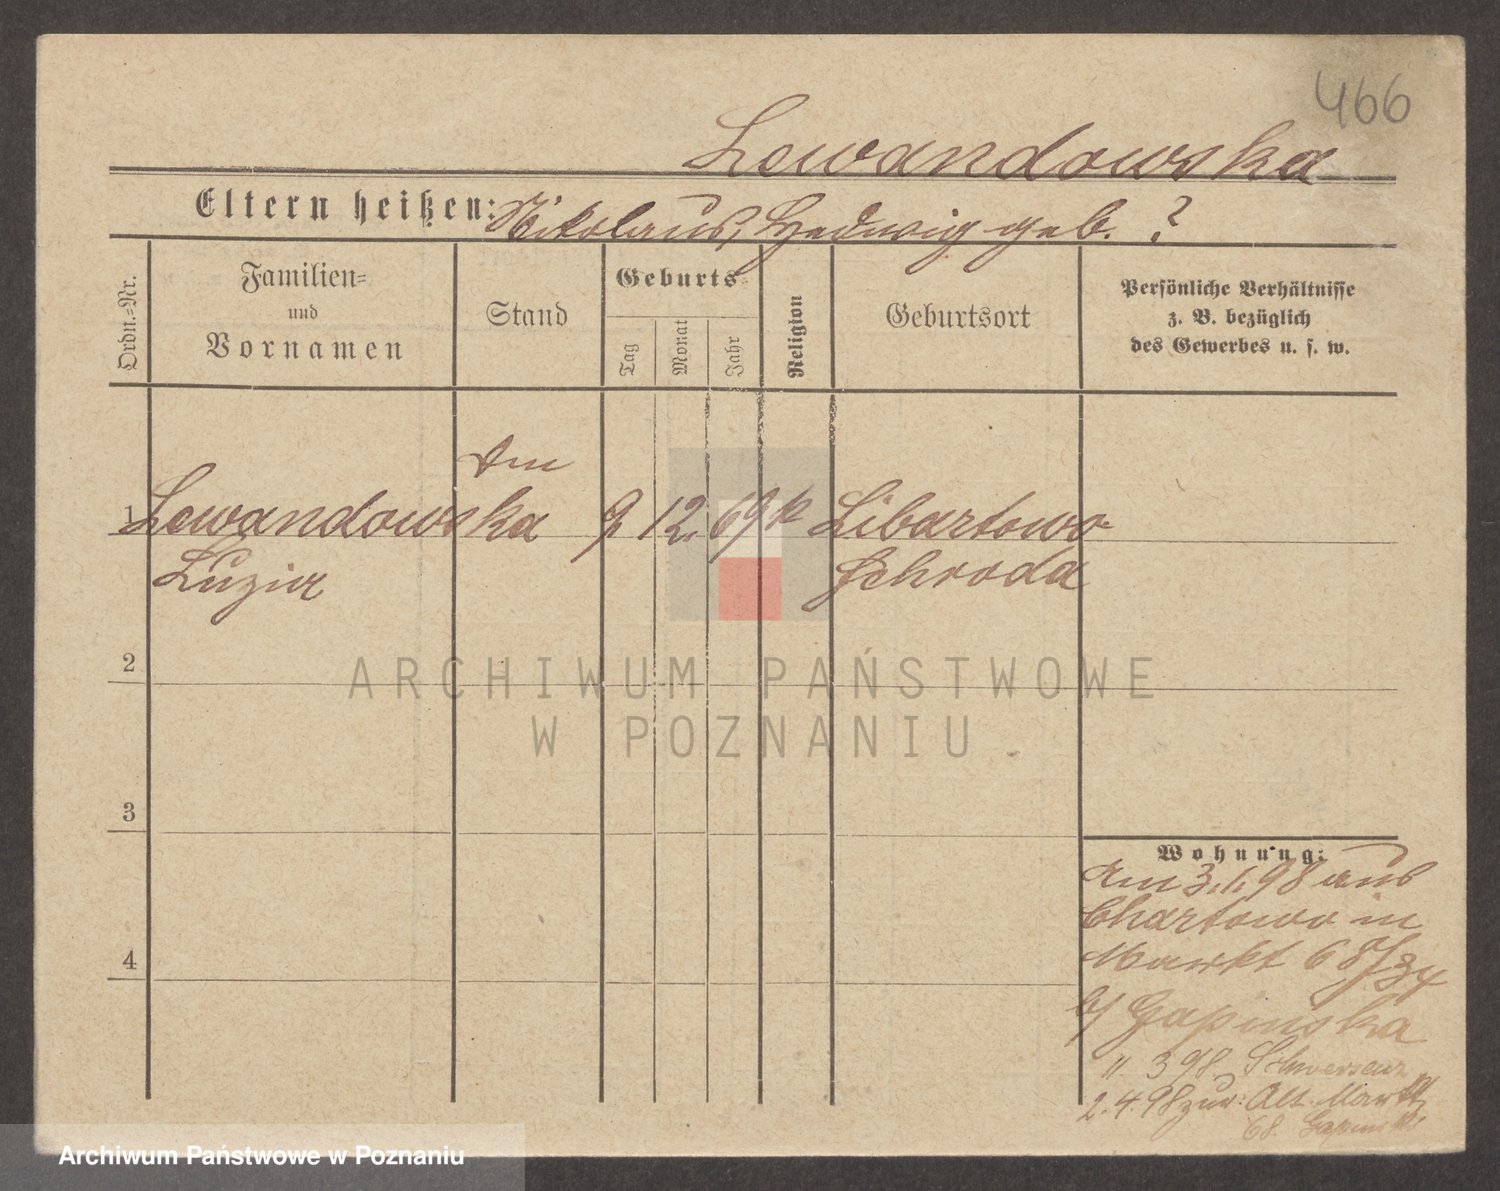 466
Lewandowska
Eltern heißen: Nikolaus, Hedwig geb. ?
Ordn.-Nr.
Familien-
und
Vornamen
Stand
Geburts-
Tag
Monat
Jahr
Religion
Geburtsort
Persönliche Verhältnisse
z. B. bezüglich
des Gewerbes u. s. w.
1 Lewandowska 9 12. 69 k Libartowo
Luzia Schroda
ARCHIWUM PAŃSTWOWE
W POZNANIU
2
3
4
Wohnung:
am 3.1.98 aus
Chartowo in
Markt 68/34
b/ Gapinska
11 3 98 Schwersenz
2.4.98 zur: Alt. Markt
68
Archiwum Państwowe w Poznaniu